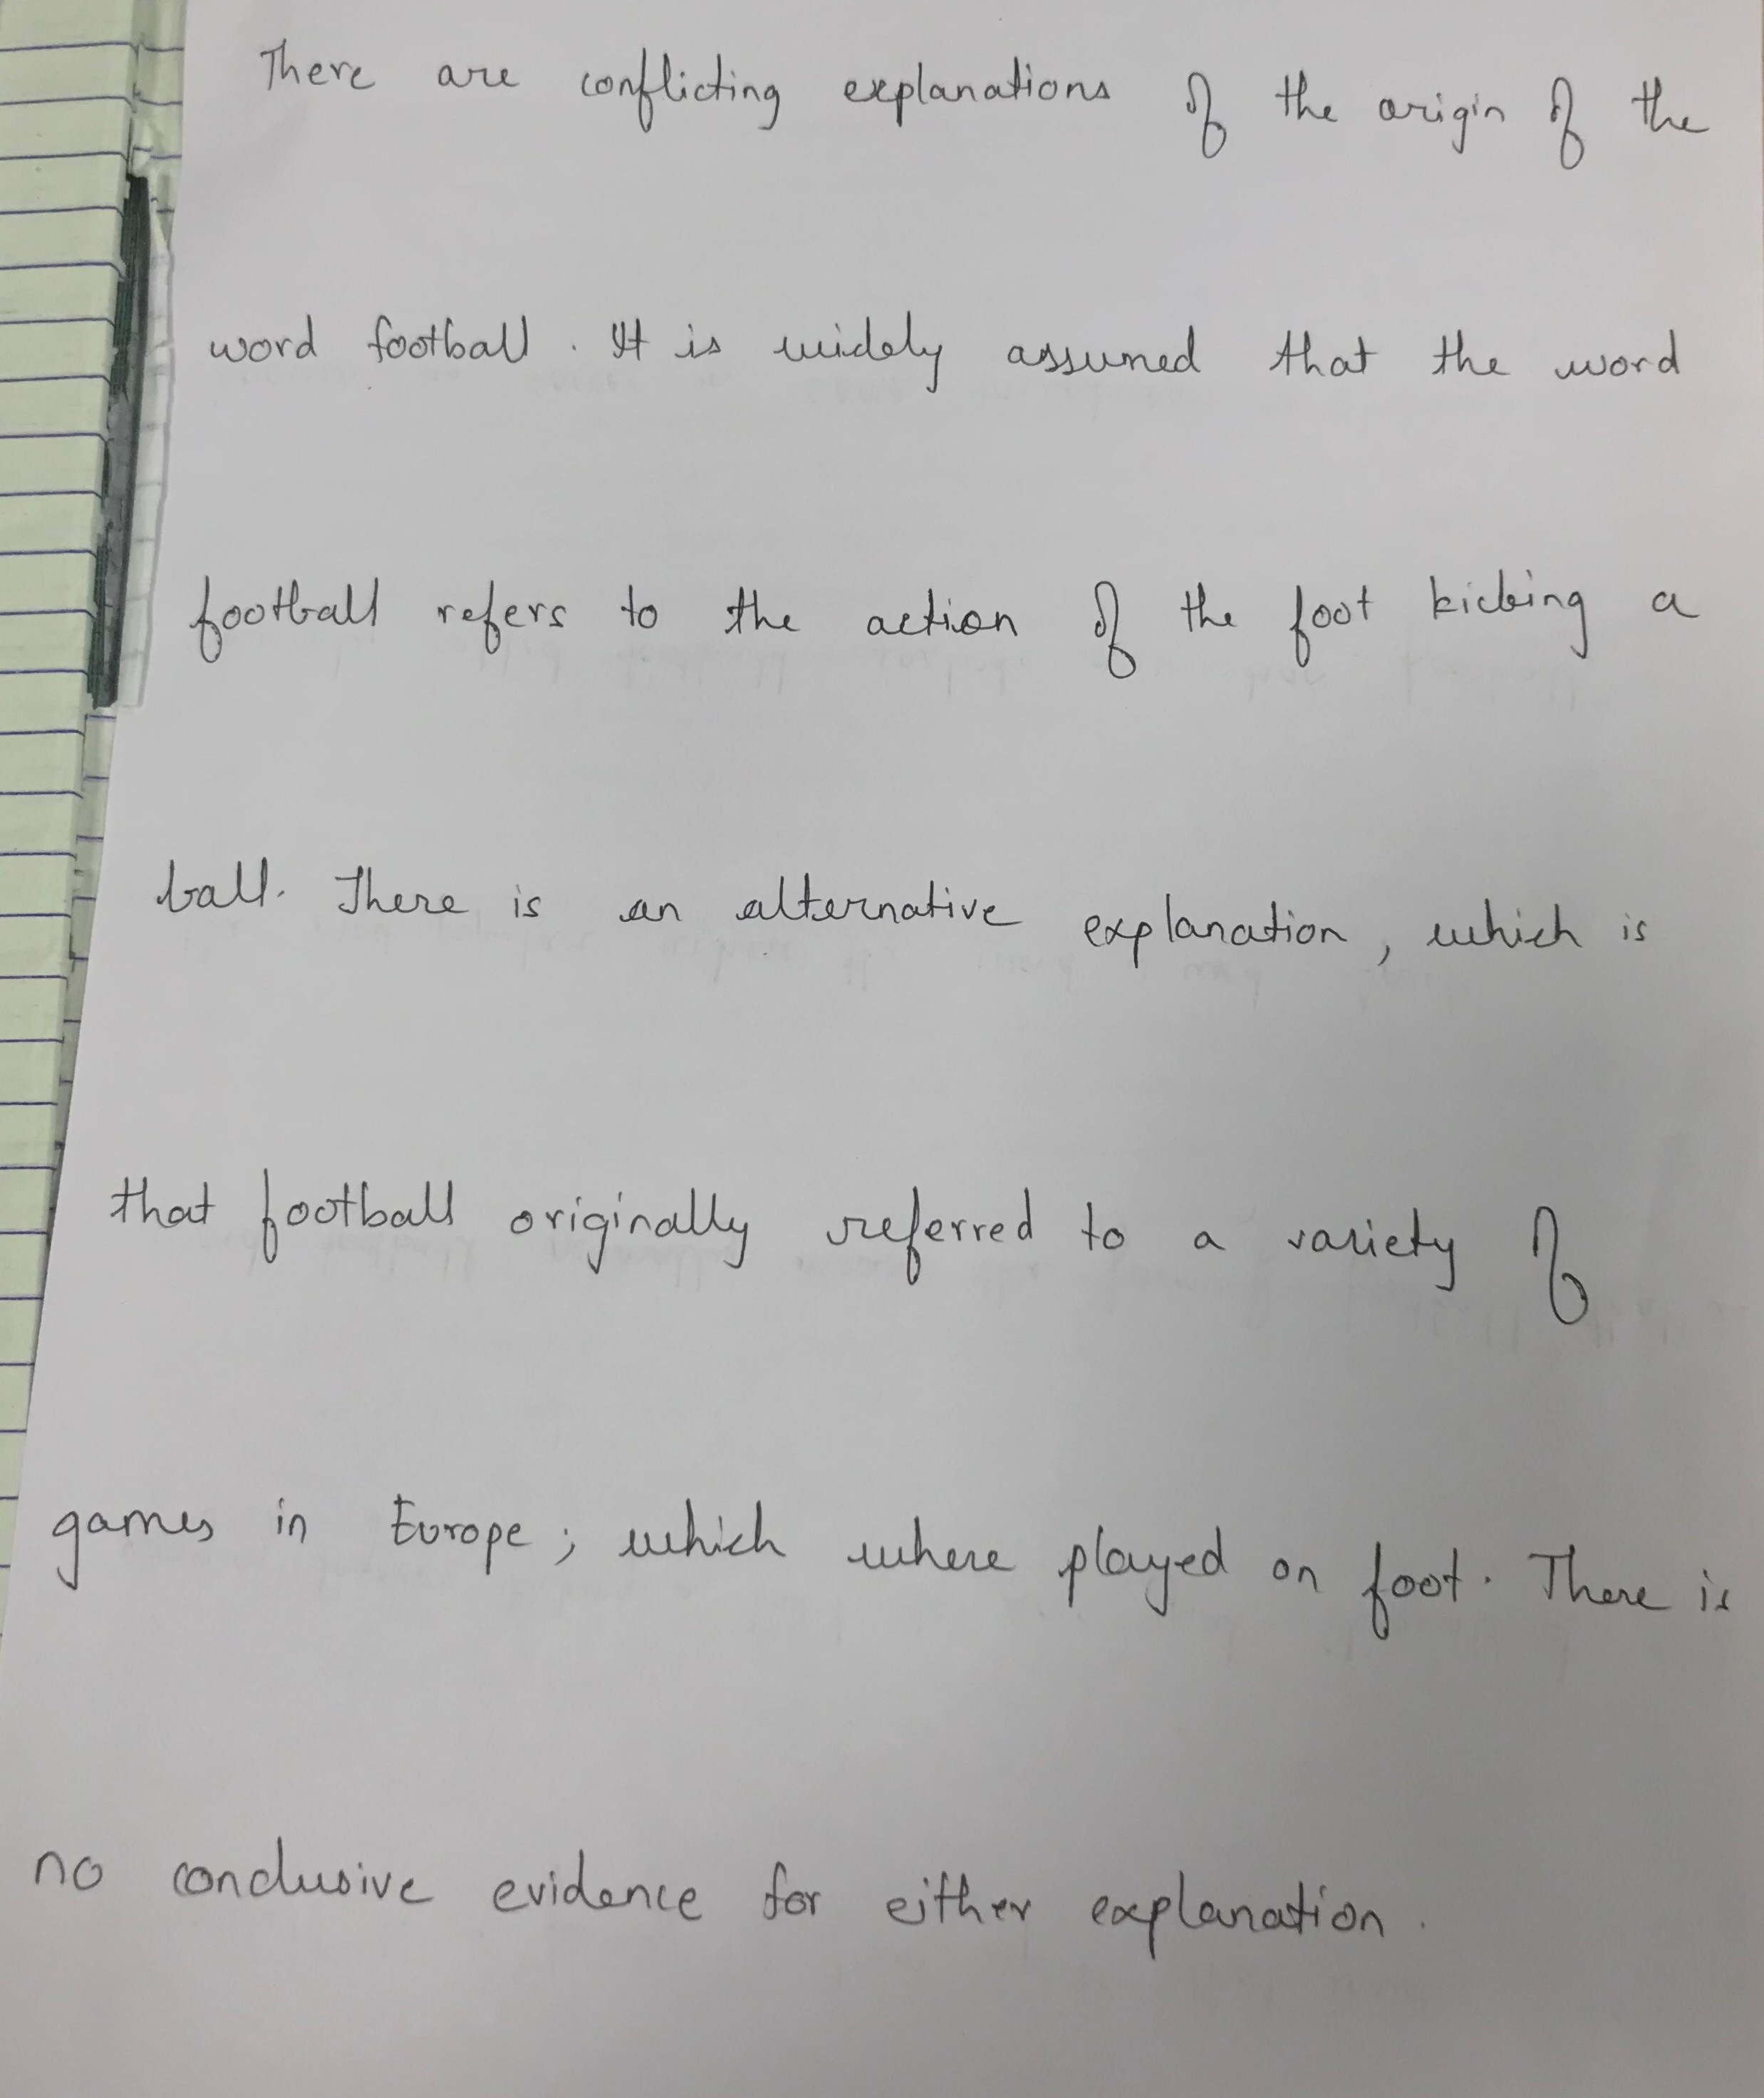 There are conflicting explanations of the origin of the
word football. It is widely assumed that the word
football refers to the action of the foot kicking a
ball. There is an alternative explanation, which is
that football originally referred to a variety of
games in Europe; which where played on foot. There is
no conclusive evidence for either explanation.